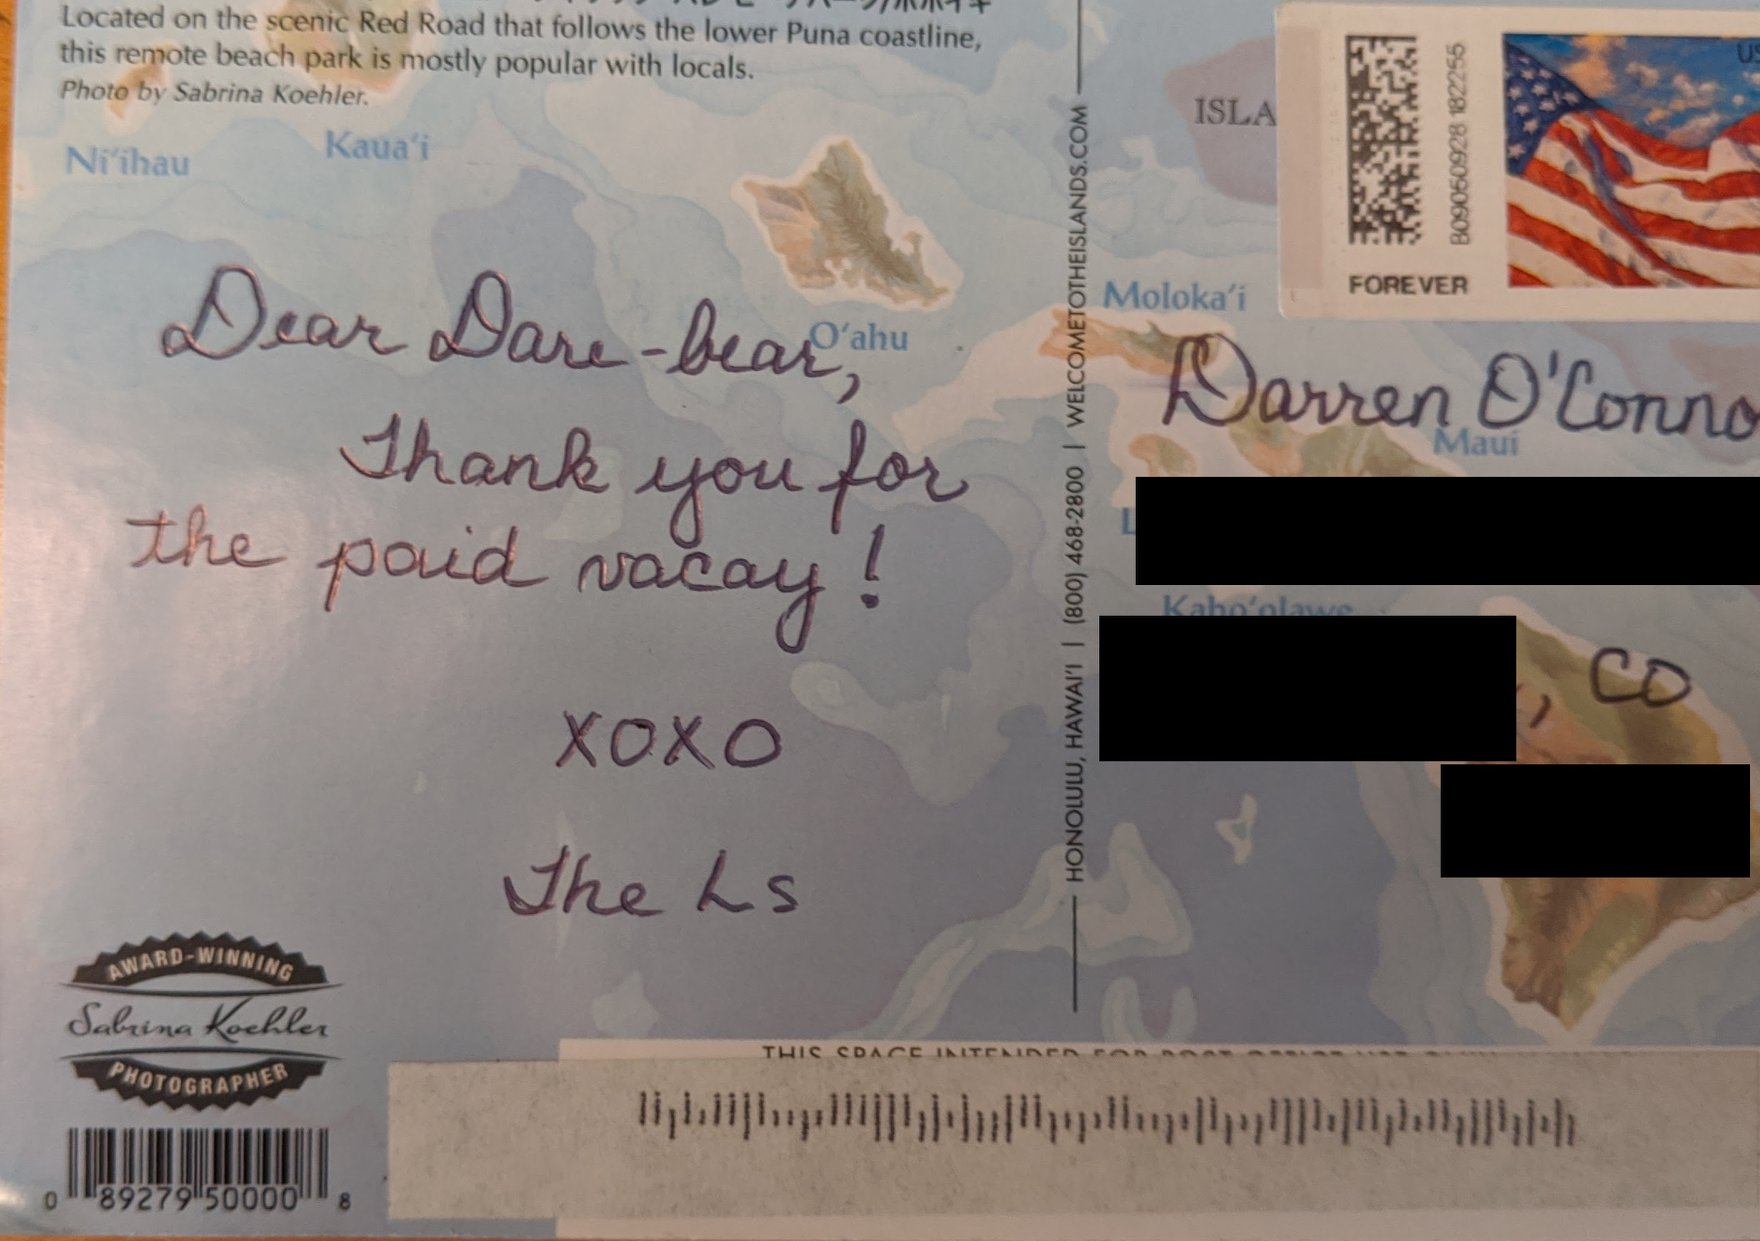 Located on the scenic Red Road that follows the lower Puna coastline,
this remote beach park is mostly popular with locals.
Photo by Sabrina Koehler.
Ni‘ihau
Kaua‘i
O‘ahu
Dear Dare-bear,
Thank you for
the paid vacay!
XOXO
The Ls
AWARD-WINNING
Sabrina Koehler
PHOTOGRAPHER
0 89279 50000 8
HONOLULU, HAWAI‘I | (800) 468-2800 | WELCOMETOTHEISLANDS.COM
ISLA
B09050928 182255
FOREVER
US
Moloka‘i
Darren O'Conno
Maui
L
Kaho‘olawe
, CO
THIS SPACE INTENDED FOR POST OFFICE USE